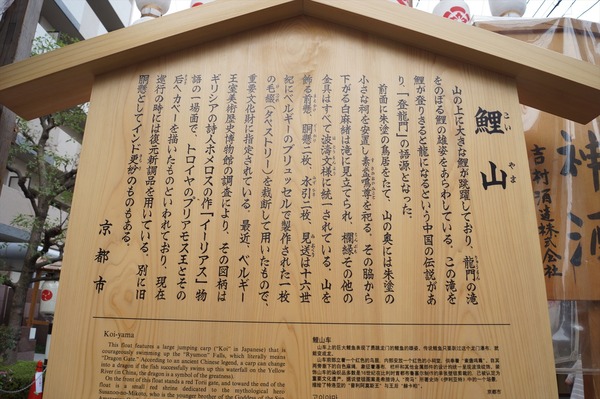 鯉山
こい やま
山の上に大きな鯉が跳躍しており、龍門の滝
をのぼる鯉の雄姿をあらわしている。この滝を
鯉が登りきると龍になるという中国の伝説があ
り、「登龍門」の語源となった。
前面に朱塗の鳥居をたて、山の奥には朱塗の
小さな祠を安置し素盞嗚尊を祀る。その脇から
下がる白麻緒は滝に見立てられ、欄縁その他の
金具はすべて波濤文様に統一されている。山を
飾る前懸、胴懸二枚、水引二枚、見送は十六世
紀にベルギーのブリュッセルで製作された一枚
の毛綴(タペストリー)を裁断して用いたもので、
重要文化財に指定されている。最近、ベルギー
王室美術歴史博物館の調査により、その図柄は
ギリシアの詩人ホメロスの作「イーリアス」物
語の一場面で、トロイヤのプリアモス王とその
后ヘカベーを描いたものといわれており、現在
巡行の時には復元新調品を用いている。別に旧
胴懸としてインド更紗のものもある。
京都市
Koi-yama
This float features a large jumping carp ("Koi" in Japanese) that is
courageously swimming up the "Ryumon" Falls, which literally means
"Dragon Gate." According to an ancient Chinese legend, a carp can change
into a dragon if the fish successfully swims up this waterfall on the Yellow
River (in China, the dragon is a symbol of greatness).
On the front of this float stands a red Torii gate, and toward the end of the
float is a small red shrine dedicated to the mythological hero
Susanoo-no-Mikoto, who is the younger brother of the Goddess of the Sun
鲤山车
京都市
吉村酒造株式会社